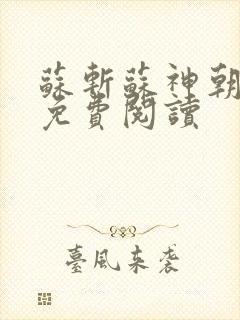 蘇斬蘇神朝
免費閱讀
臺風來袭